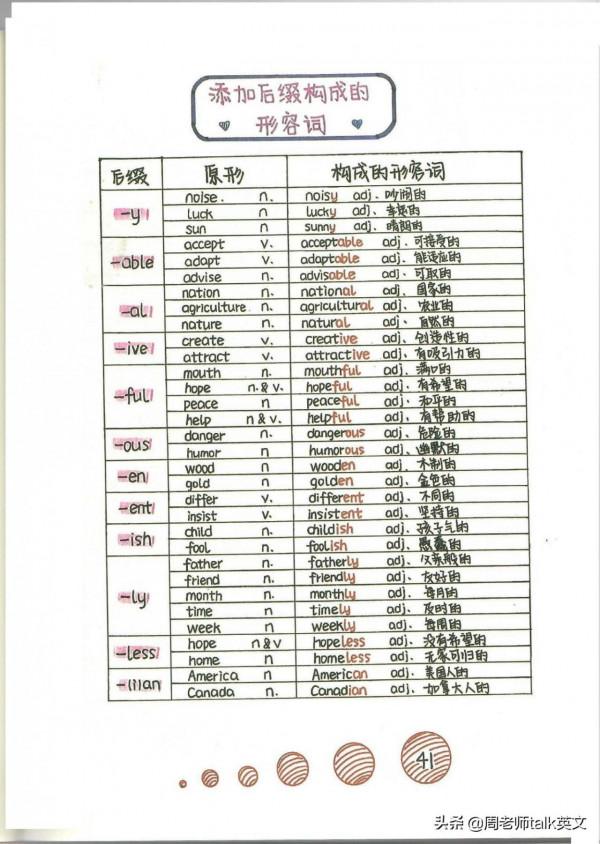 添加后缀构成的
形容词
后缀 原形 构成的形容词
-y noise. n. noisy adj. 吵闹的
luck n. lucky adj. 幸运的
sun n. sunny adj. 晴朗的
-able accept v. acceptable adj. 可接受的
adapt v. adaptable adj. 能适应的
advise n. advisable adj. 可取的
-al nation n. national adj. 国家的
agriculture n. agricultural adj. 农业的
nature n. natural adj. 自然的
-ive create v. creative adj. 创造性的
attract v. attractive adj. 有吸引力的
-ful mouth n. mouthful adj. 满口的
hope n.&v. hopeful adj. 有希望的
peace n peaceful adj. 和平的
help n&v. helpful adj. 有帮助的
-ous danger n. dangerous adj. 危险的
humor n humorous adj. 幽默的
-en wood n wooden adj. 木制的
gold n golden adj. 金色的
-ent differ v. different adj. 不同的
insist v. insistent adj. 坚持的
-ish child n. childish adj. 孩子气的
fool n. foolish adj. 愚蠢的
-ly father n. fatherly adj. 父亲般的
friend n. friendly adj. 友好的
month n. monthly adj. 每月的
time n timely adj. 及时的
week n weekly adj. 每周的
-less hope n&v hopeless adj. 没有希望的
home n homeless adj. 无家可归的
-(i)an America n American adj. 美国人的
Canada n. Canadian adj. 加拿大人的
41
头条 @周老师talk英文